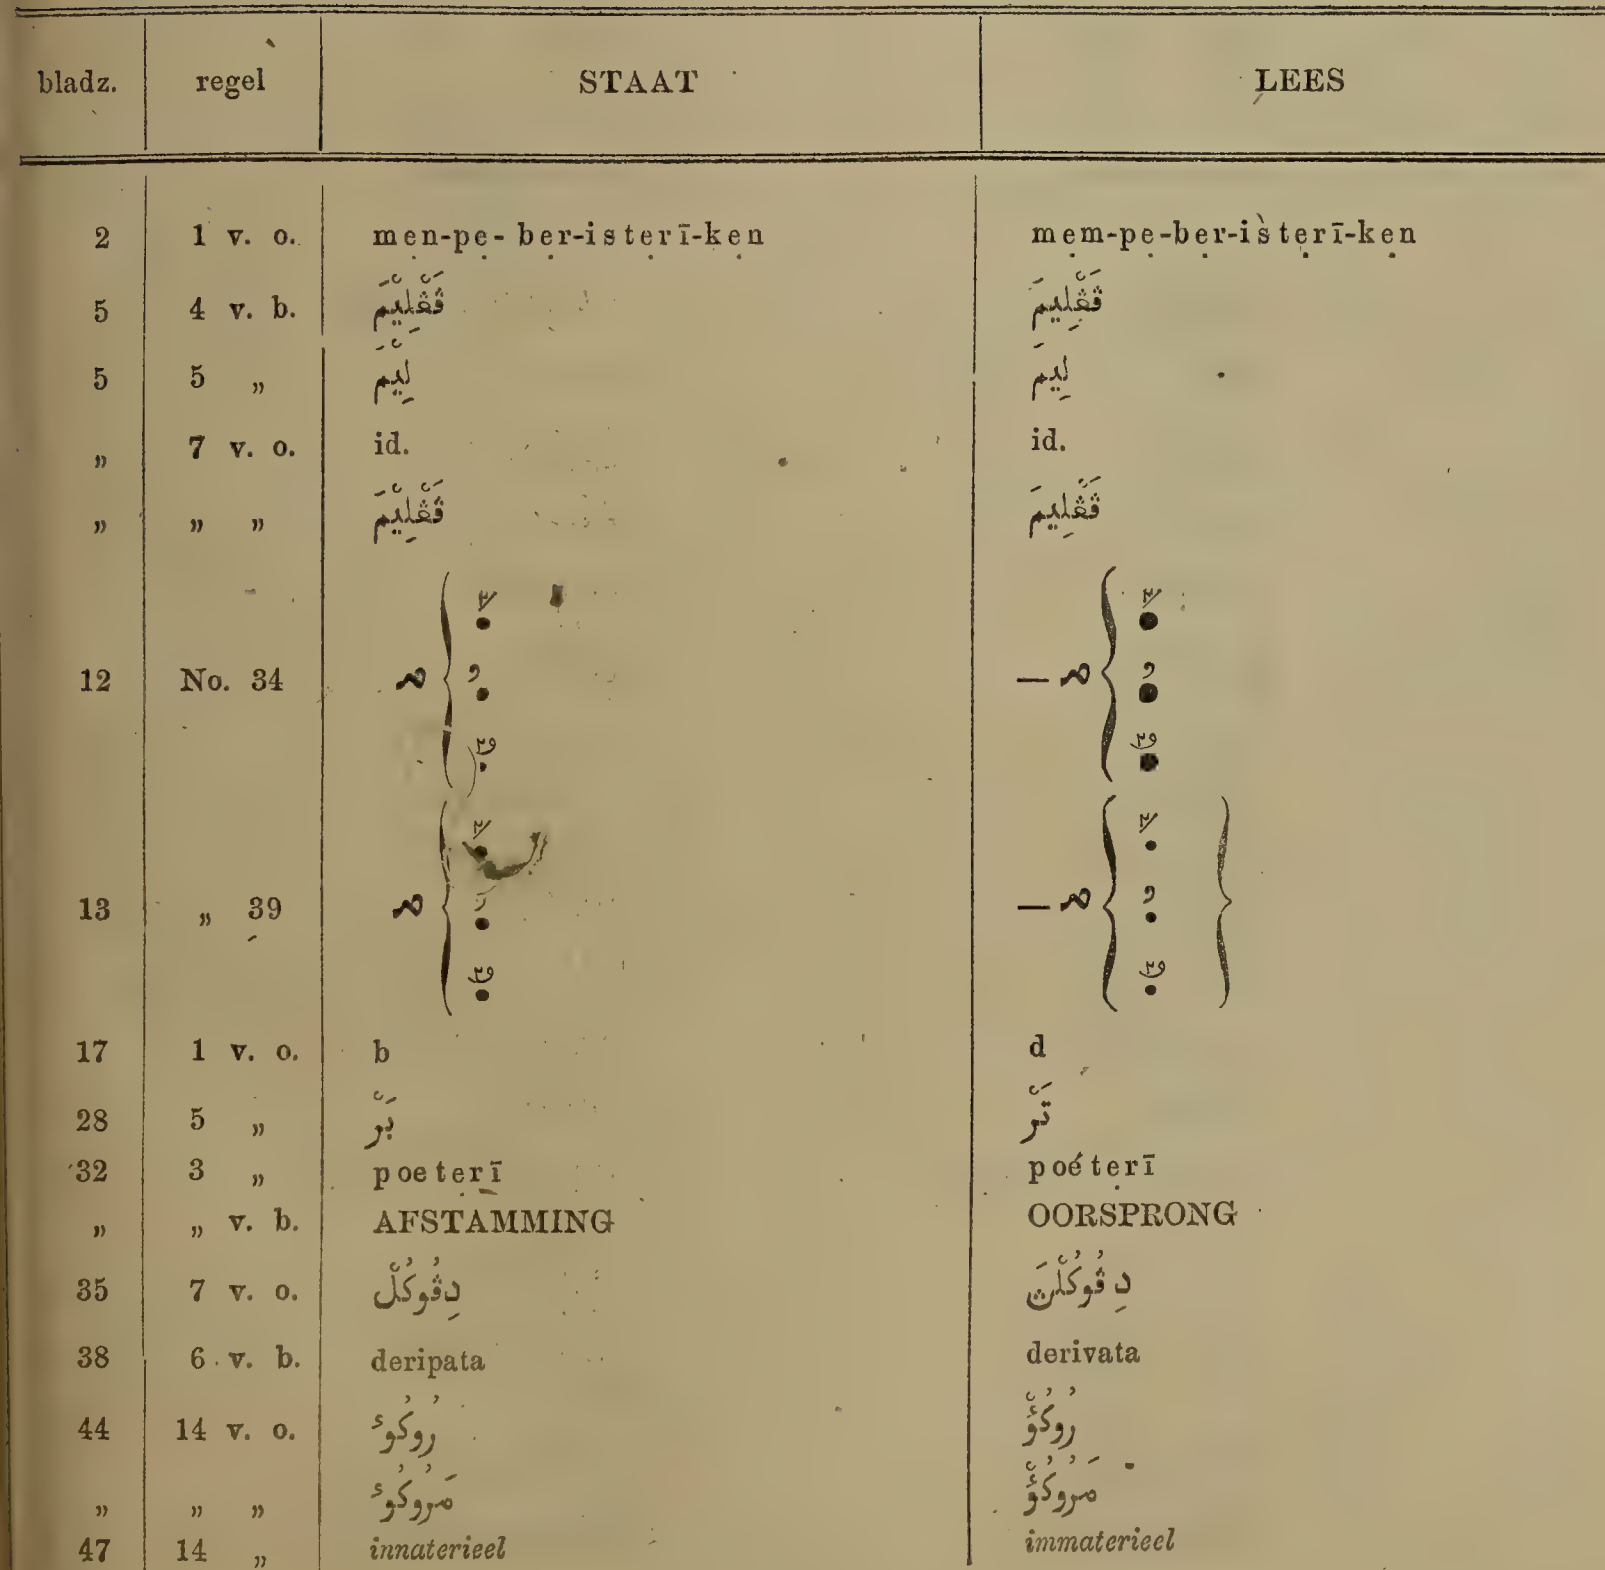 bladz. regel STAAT LEES
2 1 v. o. mẹn-pẹ-bẹr-istẹrī-kẹn mẹm-pẹ-bẹr-istẹrī-kẹn
5 4 v. b. ڤَڠْݢْلِيْمَ ڤَڠݢْلِيمَ
5 5 „ لِيْمَ لِيمَ
„ 7 v. o. id. id.
„ „ „
12 No. 34
13 „ 39
17 1 v. o. b d
28 5 „ بَرْ تَرْ
32 3 „ poetẹrī poétẹrī
„ „ v. b. AFSTAMMING OORSPRONG
35 7 v. o. دِڤُوكُلْ دِ ڤُوكُلْنَ
38 6 v. b. deripata derivata
44 14 v. o. رُوكُوء رُوكُؤْ
„ „ „ مَرُوكُوء مَرُوكُؤْ
47 14 „ innaterieel immaterieel